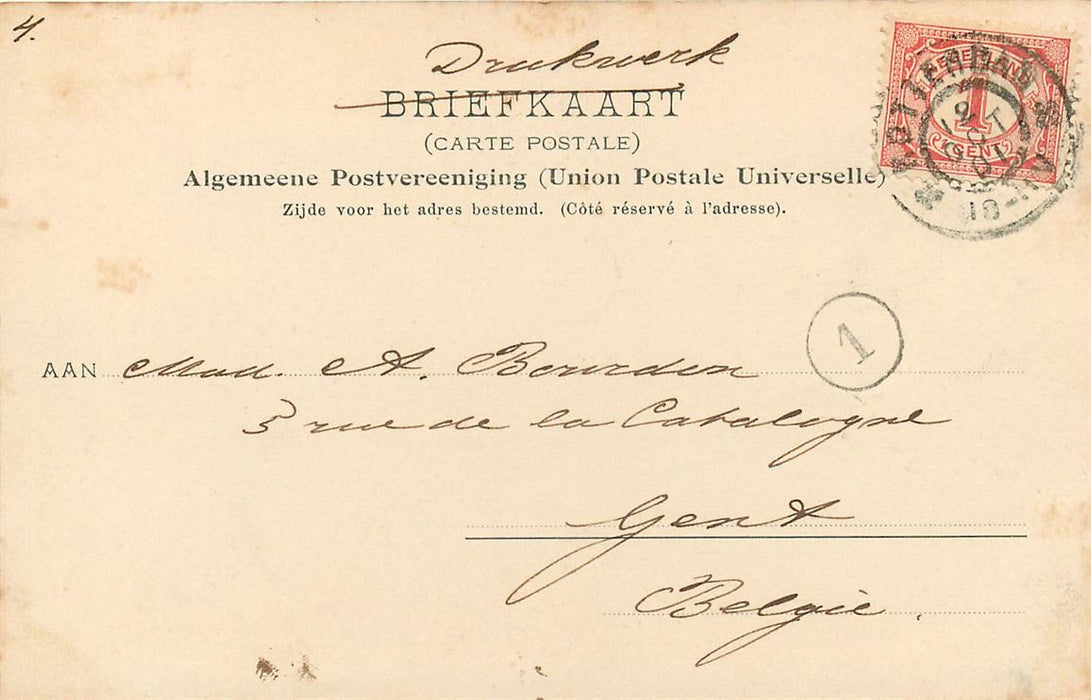 4.
Drukwerk
BRIEFKAART
(CARTE POSTALE)
Algemeene Postvereeniging (Union Postale Universelle)
Zijde voor het adres bestemd. (Côté réservé à l'adresse).
NEDERLAND
1
CENT
ROTTERDAM
1
AAN Mad. A. Bourdon
5 rue de la Catalogne
Gent
België.